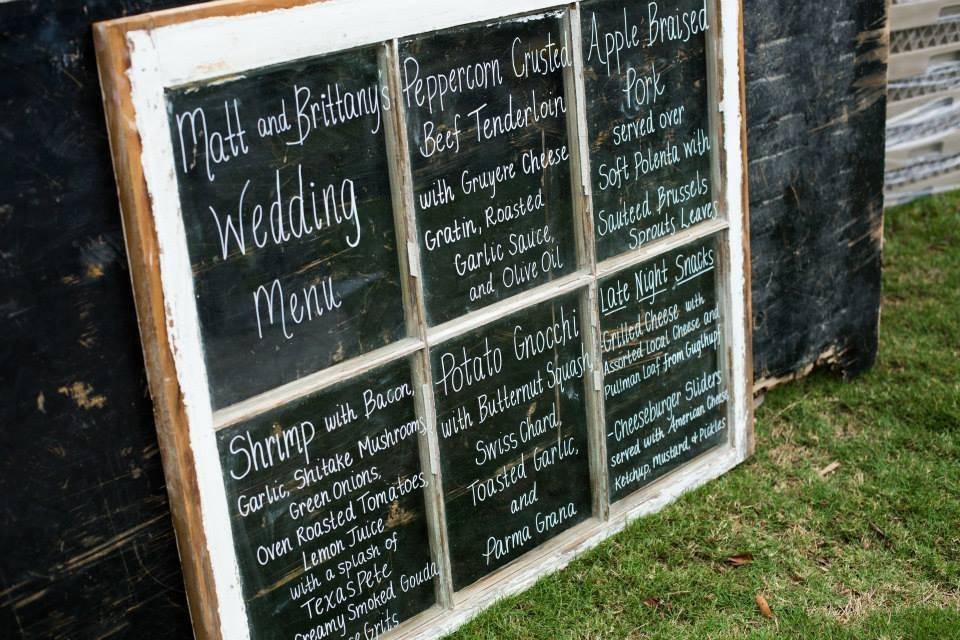 Matt and Brittany's
Wedding
Menu
Peppercorn Crusted
Beef Tenderloin
with Gruyere Cheese
Gratin, Roasted
Garlic Sauce,
and Olive Oil
Apple Braised
Pork
served over
Soft Polenta with
Sauteed Brussels
Sprouts Leaves
Shrimp with Bacon,
Garlic, Shitake Mushrooms
Green Onions,
Oven Roasted Tomatoes,
Lemon Juice
with a splash of
Texas Pete
Creamy Smoked Gouda
Grits
Potato Gnocchi
with Butternut Squash
Swiss Chard,
Toasted Garlic,
and
Parma Grana
Late Night Snacks
Grilled Cheese with
Assorted Local Cheese and
Pullman Loaf from Guglhupf
-Cheeseburger Sliders
served with American Cheese
Ketchup, Mustard, & Pickles